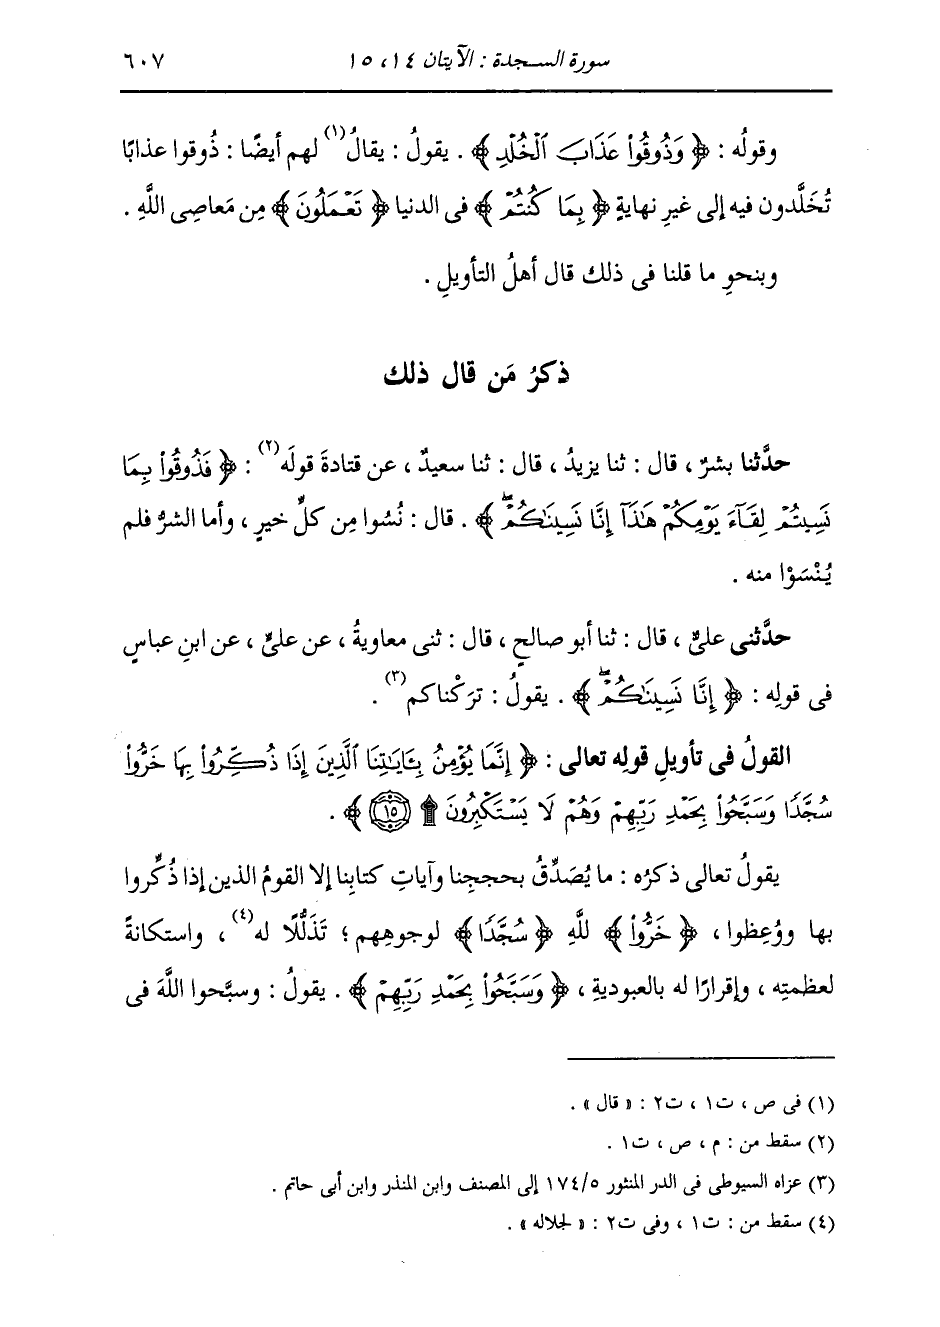 سورة السجدة : الآيتان ١٤، ١٥ ٦٠٧
وقولُه : ﴿ وَذُوقُوا۟ عَذَابَ ٱلْخُلْدِ ﴾ . يقولُ : يقالُ (١) لهم أيضًا : ذُوقوا عذابًا
تُخَلَّدون فيه إلى غيرِ نهايةٍ ﴿ بِمَا كُنتُمْ ﴾ فى الدنيا ﴿ تَعْمَلُونَ ﴾ مِن مَعاصِى اللَّهِ .
وبنحوِ ما قلنا فى ذلك قال أهلُ التأويلِ .
ذكرُ مَن قال ذلك
حدَّثنا بشرٌ ، قال : ثنا يزيدُ ، قال : ثنا سعيدٌ ، عن قتادةَ قولَه (٢) : ﴿ فَذُوقُوا۟ بِمَا
نَسِيتُمْ لِقَآءَ يَوْمِكُمْ هَٰذَآ إِنَّا نَسِينَٰكُمْ ۖ ﴾ . قال : نُسُوا مِن كلِّ خيرٍ ، وأما الشرُّ فلم
يُنْسَوْا منه .
حدَّثنى علىٌّ ، قال : ثنا أبو صالحٍ ، قال : ثنى معاويةُ ، عن علىٍّ ، عن ابنِ عباسٍ
فى قولِه : ﴿ إِنَّا نَسِينَٰكُمْ ۖ ﴾ . يقولُ : ترَكْناكم (٣) .
القولُ فى تأويلِ قولِه تعالى : ﴿ إِنَّمَا يُؤْمِنُ بِـَٔايَٰتِنَا ٱلَّذِينَ إِذَا ذُكِّرُوا۟ بِهَا خَرُّوا۟
سُجَّدًا وَسَبَّحُوا۟ بِحَمْدِ رَبِّهِمْ وَهُمْ لَا يَسْتَكْبِرُونَ ۩ ١٥ ﴾ .
يقولُ تعالى ذكرُه : ما يُصَدِّقُ بحججِنا وآياتِ كتابِنا إلا القومُ الذين إذا ذُكِّروا
بها ووُعِظوا ، ﴿ خَرُّوا۟ ﴾ للَّهِ ﴿ سُجَّدًا ﴾ لوجوهِهم ؛ تَذَلُّلًا له (٤) ، واستكانةً
لعظمتِه ، وإقرارًا له بالعبوديةِ ، ﴿ وَسَبَّحُوا۟ بِحَمْدِ رَبِّهِمْ ﴾ . يقولُ : وسبَّحوا اللَّهَ فى
(١) فى ص ، ت١ ، ت٢ : « قال » .
(٢) سقط من : م ، ص ، ت١ .
(٣) عزاه السيوطى فى الدر المنثور ١٧٤/٥ إلى المصنف وابن المنذر وابن أبى حاتم .
(٤) سقط من : ت١ ، وفى ت٢ : « لجلاله » .